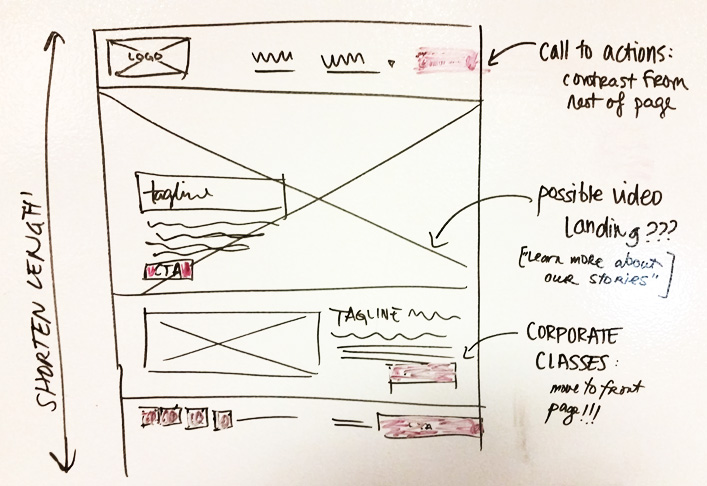 LOGO
call to actions:
contrast from
rest of page
tagline
CTA
possible video
landing???
["Learn more about
our stories"]
SHORTEN LENGTH!
TAGLINE
CORPORATE
CLASSES:
move to front
page!!!